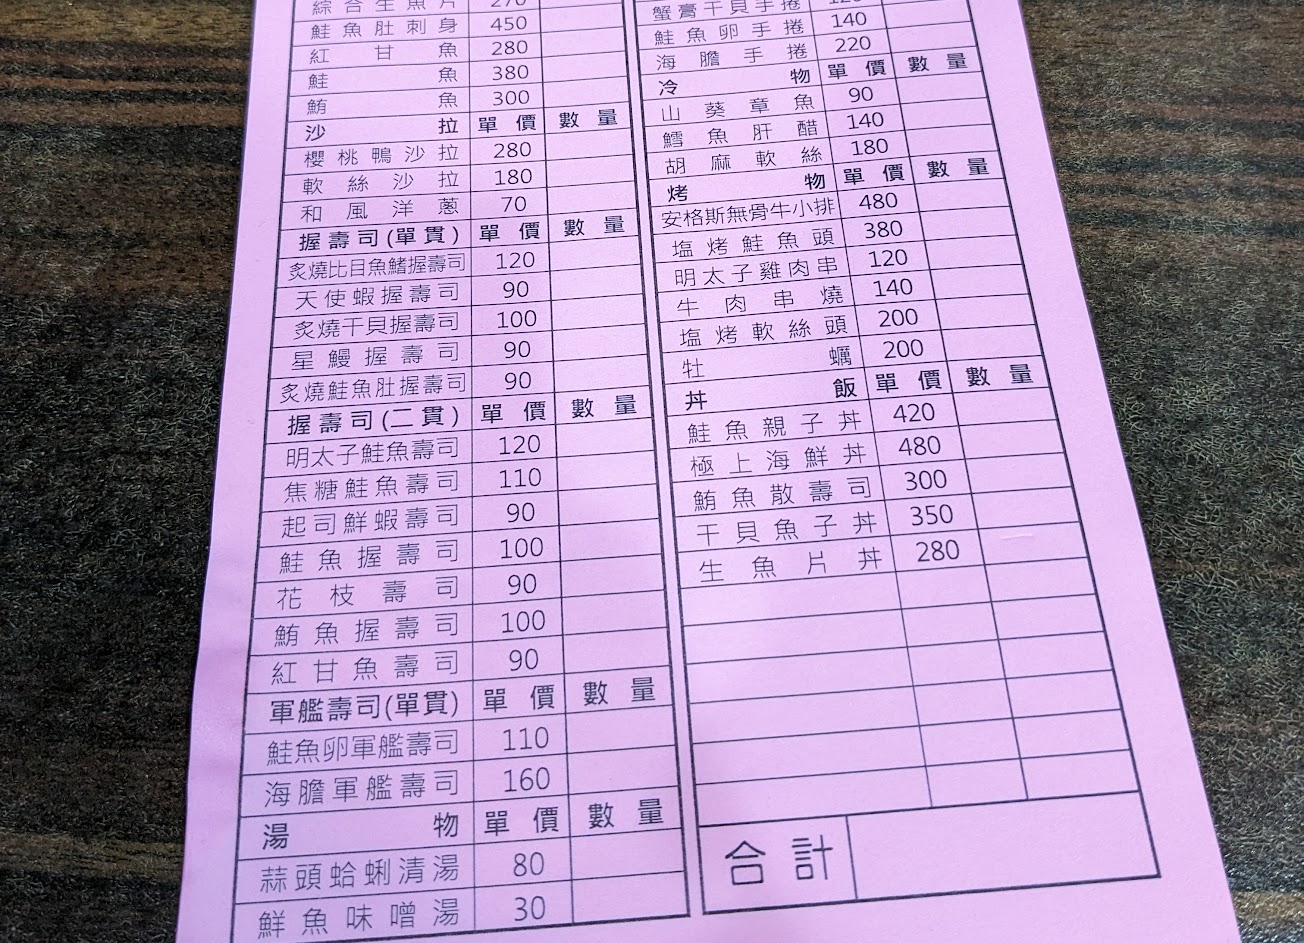 綜合生魚片 270
鮭魚肚刺身 450
紅甘魚 280
鮭魚 380
鮪魚 300
沙拉 單價 數量
櫻桃鴨沙拉 280
軟絲沙拉 180
和風洋蔥 70
握壽司(單貫) 單價 數量
炙燒比目魚鰭握壽司 120
天使蝦握壽司 90
炙燒干貝握壽司 100
星鰻握壽司 90
炙燒鮭魚肚握壽司 90
握壽司(二貫) 單價 數量
明太子鮭魚壽司 120
焦糖鮭魚壽司 110
起司鮮蝦壽司 90
鮭魚握壽司 100
花枝壽司 90
鮪魚握壽司 100
紅甘魚壽司 90
軍艦壽司(單貫) 單價 數量
鮭魚卵軍艦壽司 110
海膽軍艦壽司 160
湯物 單價 數量
蒜頭蛤蜊清湯 80
鮮魚味噌湯 30
蟹膏干貝手捲
鮭魚卵手捲 140
海膽手捲 220
冷物 單價 數量
山葵章魚 90
鱈魚肝醋 140
胡麻軟絲 180
烤物 單價 數量
安格斯無骨牛小排 480
塩烤鮭魚頭 380
明太子雞肉串 120
牛肉串燒 140
塩烤軟絲頭 200
牡蠣 200
丼飯 單價 數量
鮭魚親子丼 420
極上海鮮丼 480
鮪魚散壽司 300
干貝魚子丼 350
生魚片丼 280
合計